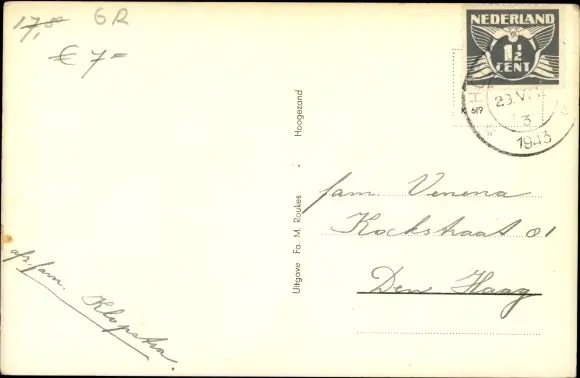 17,50 GR
€ 7-
NEDERLAND
1½
CENT
K 619
1943
Uitgave Fa. M. Roukes - Hoogezand
fam. Venema
Kockstraat 01
Den Haag
afz. fam. Klopstra